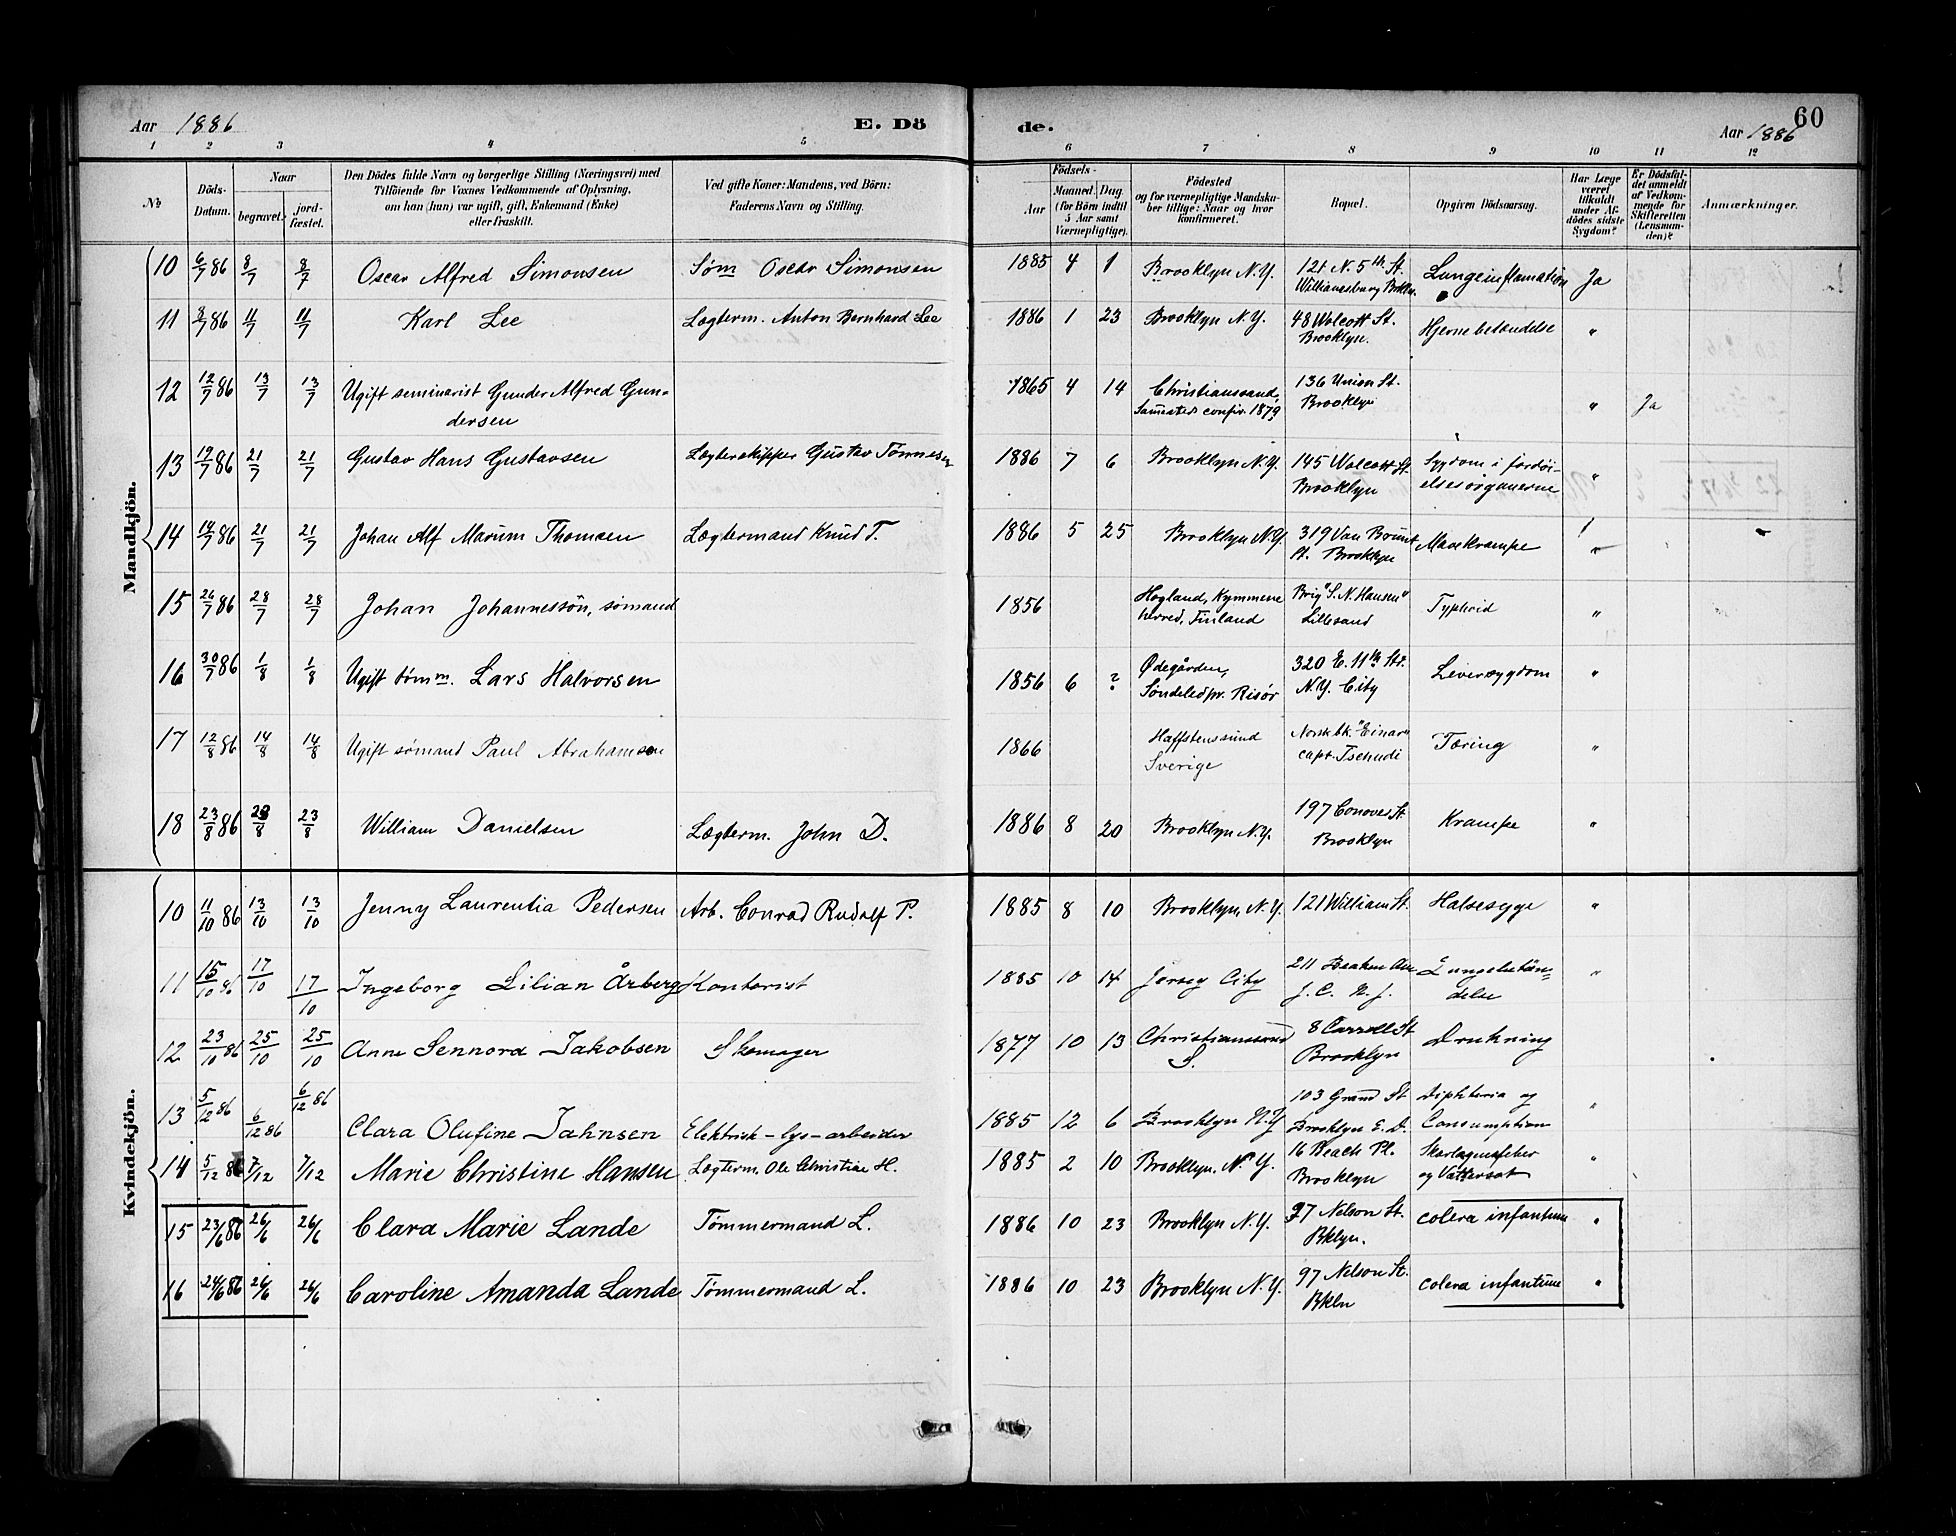 Aar 1886 E. Dö de. 60
Aar 1886
1 2 3 4 5 6 7 8 9 10 11 12
No
Döds-Datum.
Naar
begravet.
jord-fæstet.
Den Dödes fulde Navn og borgerlige Stilling (Næringsvei) med
Tilföiende for Voxnes Vedkommende af Oplysning,
om han (hun) var ugift, gift, Enkemand (Enke)
eller fraskilt.
Ved gifte Koner: Mandens, ved Börn:
Faderens Navn og Stilling.
Födsels-
Aar
Maaned. Dag.
(for Börn indtil
5 Aar samt
Værnepligtige).
Födested
og for værnepligtige Mandska-
ber tillige: Naar og hvor
konfirmeret.
Bopæl.
Opgiven Dödsaarsag.
Har Læge
været
tilkaldt
under Af-
dödes sidste
Sygdom?
Er Dödsfal-
det anmeldt
af Vedkom-
mende for
Skifteretten
(Lensman-
den)?
Anmærkninger.
Mandkjön.
10 6/7 86 8/7 8/7 Oscar Alfred Simonsen Søm Oscar Simonsen 1885 4 1 Brooklyn N.Y. 121 N. 5th St. Lungeinflamation Ja
Williamsburg Bkln.
11 8/7 86 11/7 11/7 Karl Lee Lægterm. Anton Bernhard Lee 1886 1 23 Brooklyn N.Y. 48 Wolcott St. Hjernebetændelse "
Brooklyn.
12 12/7 86 13/7 13/7 Ugift seminarist Gunder Alfred Gun- 1865 4 14 Christianssand, 136 Union St. " Ja
dersen Samesteds confir. 1879 Brooklyn
13 19/7 86 21/7 21/7 Gustav Hans Gustavsen Lægterskipper Gustav Tønnesen 1886 7 6 Brooklyn N.Y. 145 Wolcott St. Sygdom i fordøi- "
Brooklyn elsesorganerne
14 19/7 86 21/7 21/7 Johan Alf Marum Thomsen Lægtermand Knud T. 1886 5 25 Brooklyn N.Y. 319 Van Brunt Mavekrampe "
St. Brooklyn
15 26/7 86 28/7 28/7 Johan Johannessön, sømand 1856 Hogland, Kymmene Brig "S. N. Hansen" Typhoid "
herred, Finland Lillesand
16 30/7 86 1/8 1/8 Ugift tømm. Lars Halvorsen 1856 6 ? Ødegården, 320 E. 11th Str. Leversygdom "
Søndeled pr. Risör N.Y. City
17 12/8 86 14/8 14/8 Ugift sømand Paul Abrahamsen 1866 Haffstenssund Norsk bk. "Einar" Tæring "
Sverige capt. Tschudi
18 23/8 86 23/8 23/8 William Danielsen Lægterm. John D. 1886 8 20 Brooklyn N.Y. 197 Conover St. Krampe "
Brooklyn
Kvindekjön.
10 11/10 86 13/10 13/10 Jenny Laurentia Pedersen Arb. Conrad Rudolf P. 1885 8 10 Brooklyn, N.Y. 121 William St. Halsesyge "
11 15/10 86 17/10 17/10 Ingeborg Lilian Årberg Kontorist 1885 10 14 Jersey City 211 Av Lungebetæn- "
J. C. N. J. delse
12 23/10 86 25/10 25/10 Anne Sennora Jakobsen Skomager 1877 10 13 Christianssand 8 Carroll St Drukning
S. Brooklyn
13 5/12 86 6/12 86 6/12 86 Clara Olufine Jahnsen Elektrisk-lys-arbeider 1885 12 6 Brooklyn N.Y. 103 Grand St Diphteria og "
Brooklyn E. D. Consumption
14 5/12 86 7/12 7/12 Marie Christine Hansen Lægterm. Ole Christian H. 1885 2 10 Brooklyn. N.Y. 16 Beach Pl. Skarlagensfeber "
Brooklyn og Vattersot
15 23/6 86 26/6 26/6 Clara Marie Lande Tømmermand L. 1886 10 23 Brooklyn N.Y. 97 Nelson St. colera infantum "
Bklyn.
16 24/6 86 26/6 26/6 Caroline Amanda Lande Tømmermand L. 1886 10 23 Brooklyn N.Y. 97 Nelson St. colera infantum "
Bkln